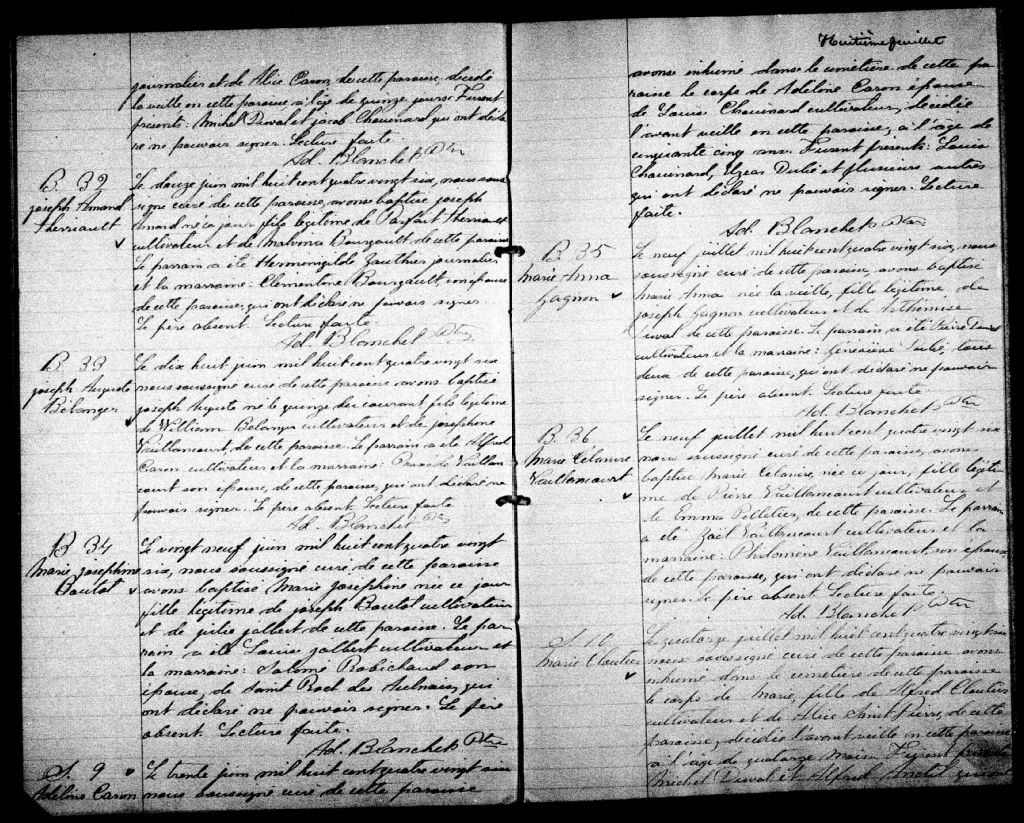 journalier et de Alice Caron, de cette paroisse, décédé
la veille en cette paroisse à l'âge de quinze jours. Furent
présents: Michel Duval et jacob Chouinard qui ont décla
ré ne pouvoir signer. Lecture faite.
Ad. Blanchet Ptre
B. 32
joseph Amand
Therriault
Le douze juin mil huit cent quatre vingt six, nous sous
signé curé de cette paroisse, avons baptisé joseph
Amand né ce jour, fils légitime de Parfait Therriault
cultivateur et de Malvina Bourgault de cette paroisse
Le parrain a été Hermenigilde Gauthier journalier
et la marraine: Clémentine Bourgault, son épouse
de cette paroisse, qui ont déclaré ne pouvoir signer.
Le père absent. Lecture faite.
Ad. Blanchet Ptre
B. 33
joseph Auguste
Bélanger
Le dix huit juin mil huit cent quatre vingt six
nous soussigné curé de cette paroisse avons baptisé
joseph Auguste né le quinze du courant fils légitime
de William Bélanger cultivateur et de josephine
Vaillancourt, de cette paroisse. Le parrain a été Alfred
Caron cultivateur et la marraine: Praxède Vaillan
court son épouse, de cette paroisse, qui ont déclaré ne
pouvoir signer. Le père absent. Lecture faite
Ad. Blanchet Ptre
B. 34
Marie josephine
Boutot
Le vingt neuf juin mil huit cent quatre vingt
six, nous soussigné curé de cette paroisse
avons baptisé Marie josephine née ce jour
fille légitime de joseph Boutot cultivateur
et de julie jalbert de cette paroisse. Le par
rain a été Louis jalbert cultivateur et
la marraine: Salomé Robichaud son
épouse, de Saint Roch des Aulnaies, qui
ont déclaré ne pouvoir signer. Le père
absent. Lecture faite.
Ad. Blanchet Ptre
S. 9
Adeline Caron
Le trente juin mil huit cent quatre vingt six
nous soussigné curé de cette paroisse
Huitième feuillet
avons inhumé dans le cimetière de cette pa
roisse le corps de Adeline Caron épouse
de Louis Chouinard cultivateur, décédée
l'avant veille en cette paroisse, à l'âge de
cinquante cinq ans. Furent présents: Louis
Chouinard, Elzear Dubé et plusieurs autres
qui ont déclaré ne pouvoir signer. Lecture
faite.
Ad. Blanchet Ptre
B. 35
Marie Anna
Gagnon
Le neuf juillet mil huit cent quatre vingt six, nous
soussigné curé de cette paroisse, avons baptisé
Marie Anna née la veille, fille légitime de
joseph Gagnon cultivateur et de Arthémise
Duval de cette paroisse. Le parrain a été Pierre Duval
cultivateur et la marraine: Généviève Dubé, tous
deux de cette paroisse, qui ont déclaré ne pouvoir
signer. Le père absent. Lecture faite
Ad. Blanchet Ptre
B. 36
Marie Zelanire
Vaillancourt
Le neuf juillet mil huit cent quatre vingt six
nous soussigné curé de cette paroisse, avons
baptisé Marie Zelanire, née ce jour, fille légiti
me de Pierre Vaillancourt cultivateur et
de Emma Pelletier, de cette paroisse. Le parrain
a été Zoël Vaillancourt cultivateur et la
marraine: Philomène Vaillancourt, son épouse
de cette paroisse, qui ont déclaré ne pouvoir
signer. Le père absent. Lecture faite.
Ad. Blanchet Ptre
S. 10
Marie Cloutier
Le quatorze juillet mil huit cent quatre vingt six
nous soussigné curé de cette paroisse avons
inhumé dans le cimetière de cette paroisse
le corps de Marie, fille de Alfred Cloutier
cultivateur et de Alice Saint Pierre, de cette
paroisse, décédée l'avant veille en cette paroisse
à l'âge de quatorze mois. Furent présents
Michel Duval et Alfred